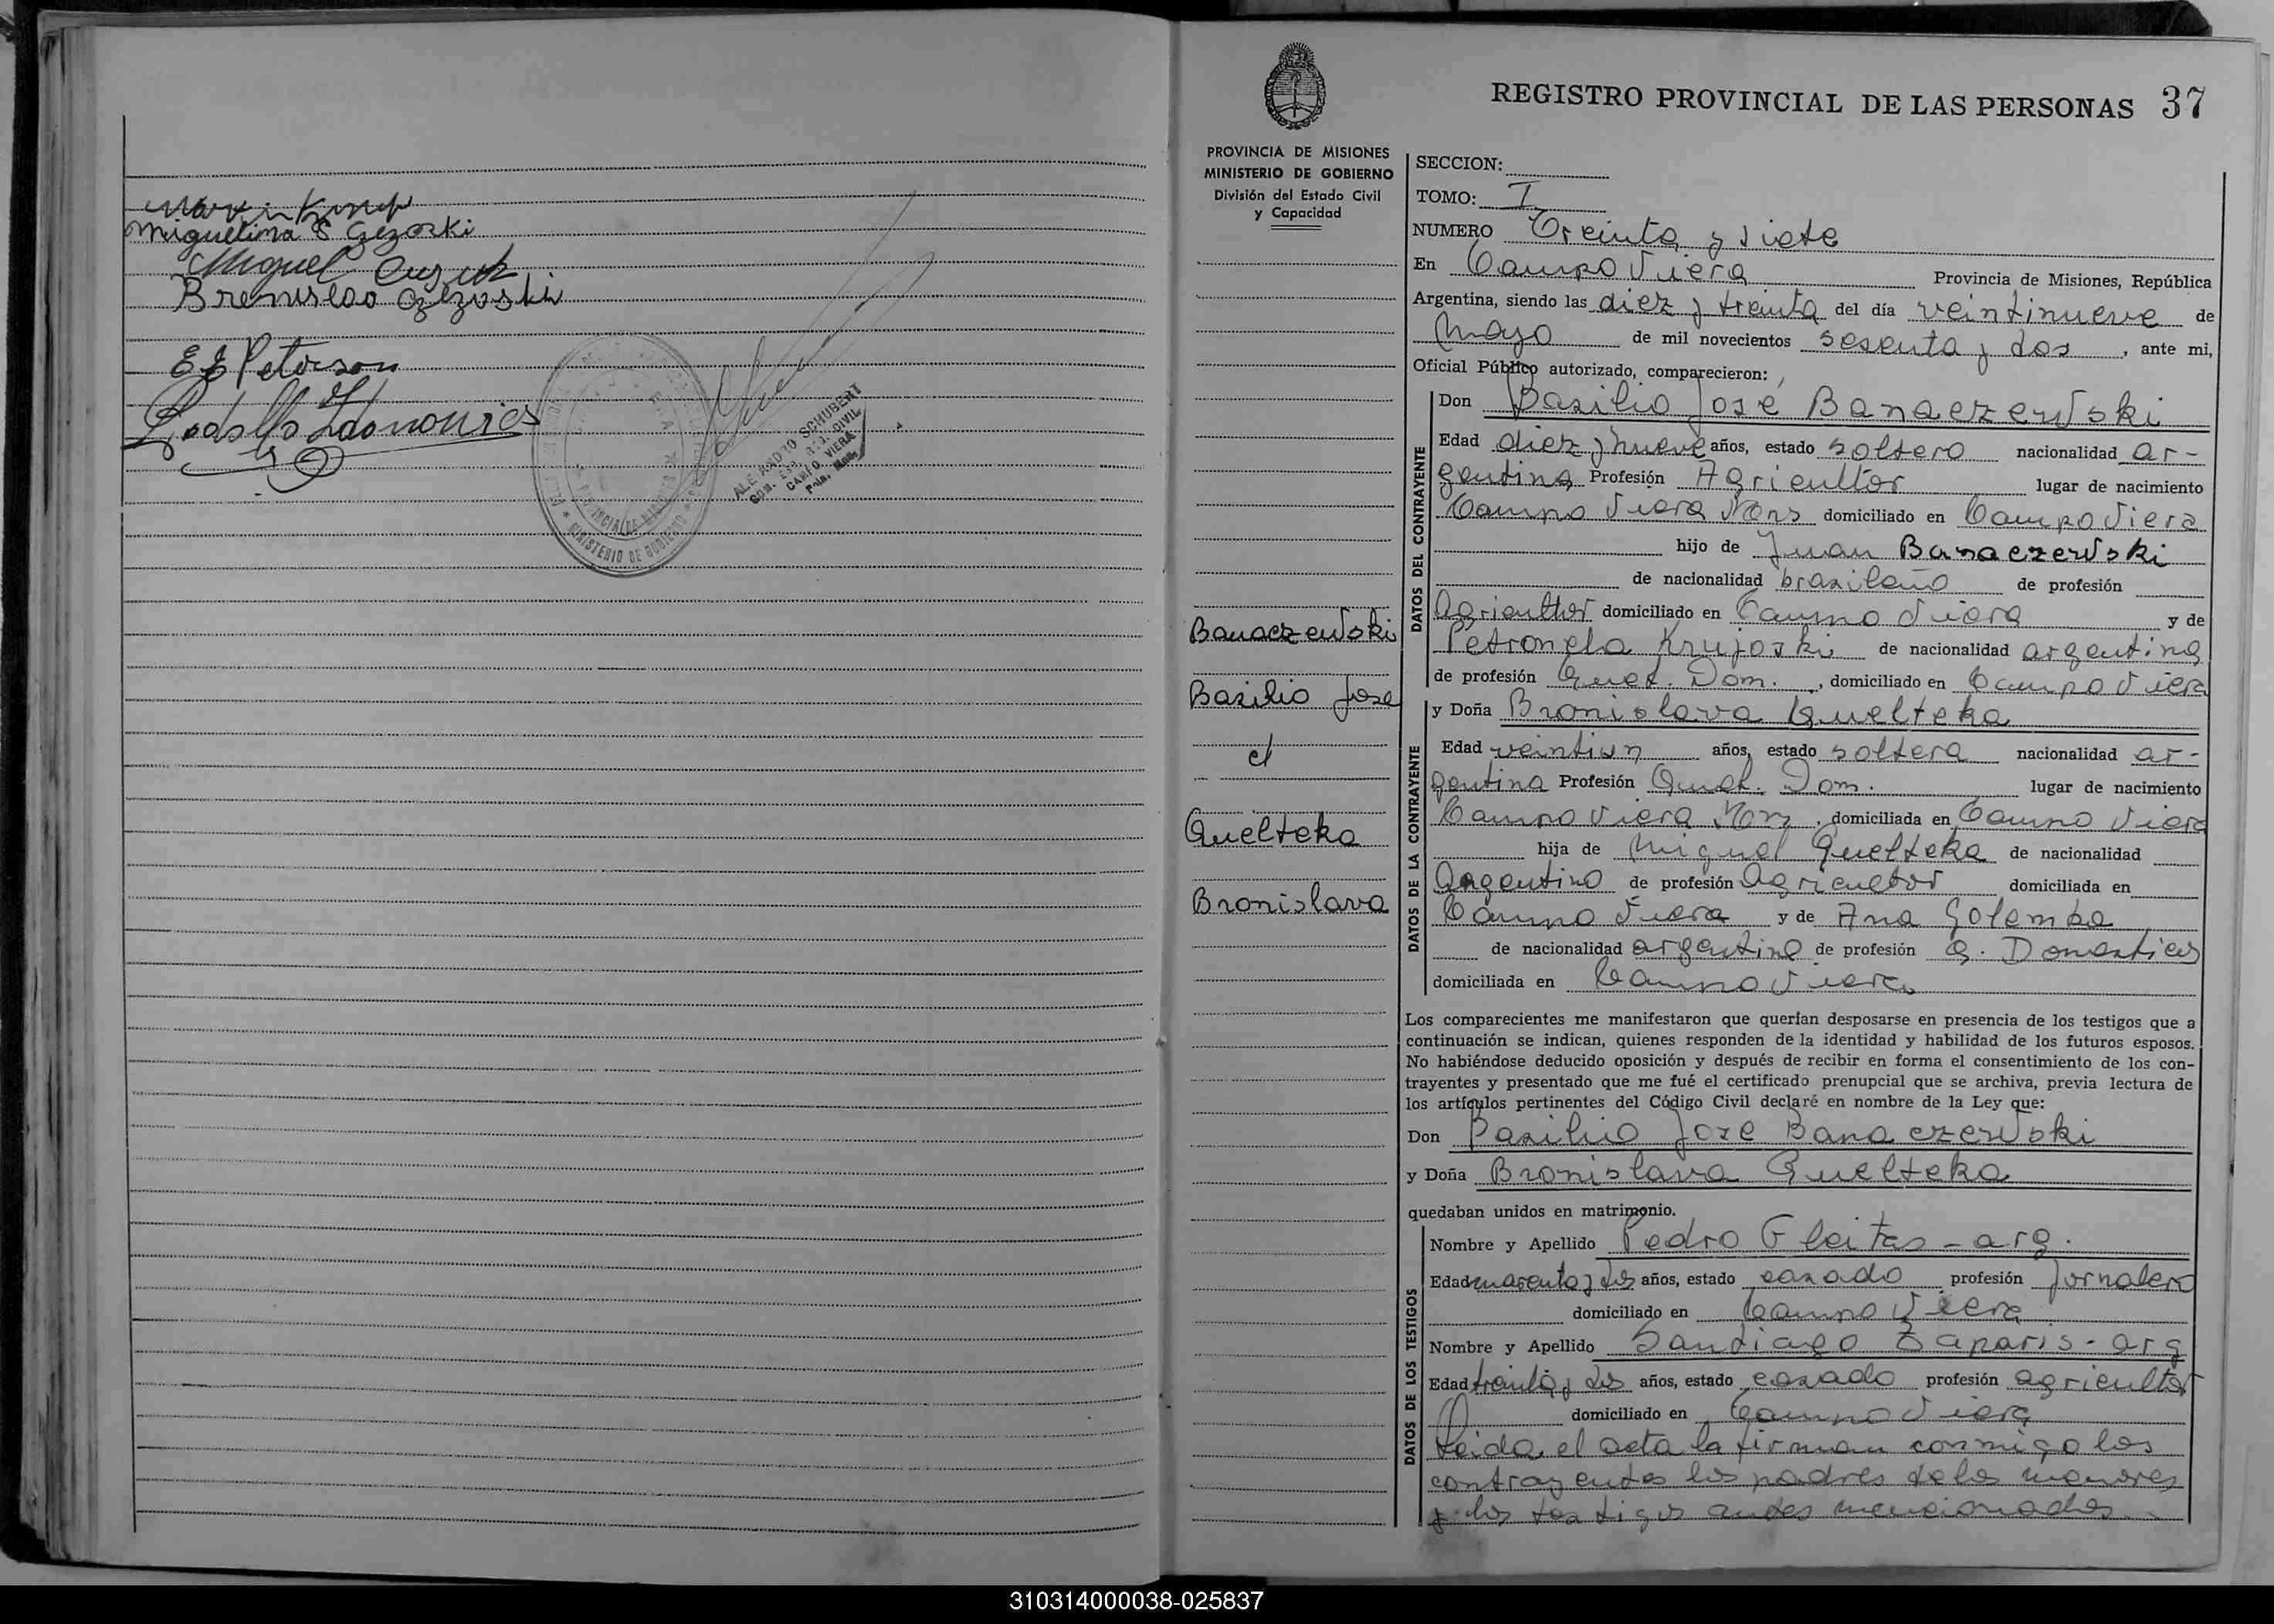 Miguelina S Gezoski
Miguel
Bronislao Gezoski
E E Peterson
MINISTERIO DE GOBIERNO
ALEJANDRO SCHUBERT
CAMPO VIERA
REGISTRO PROVINCIAL DE LAS PERSONAS 37
PROVINCIA DE MISIONES
MINISTERIO DE GOBIERNO
División del Estado Civil
y Capacidad
Banaczewski
Basilio Jose
et
Quelteka
Bronislava
SECCION:
TOMO: I
NUMERO Treinta y siete
En Campo Viera Provincia de Misiones, República
Argentina, siendo las diez y treinta del día veintinueve de
Mayo de mil novecientos sesenta y dos, ante mi,
Oficial Público autorizado, comparecieron:
DATOS DEL CONTRAYENTE
Don Basilio Jose Banaczewski
Edad diez y nueve años, estado soltero nacionalidad ar-
gentina Profesión Agricultor lugar de nacimiento
Campo Viera Mns domiciliado en Campo Viera
hijo de Juan Banaczewski
de nacionalidad brasileño de profesión
Agricultor domiciliado en Campo Viera y de
Petronela Krujoski de nacionalidad argentina
de profesión Quet. Dom., domiciliado en Campo Viera
DATOS DE LA CONTRAYENTE
y Doña Bronislava Quelteka
Edad veintiun años, estado soltera nacionalidad ar-
gentina Profesión Queh. Dom. lugar de nacimiento
Campo Viera Mns, domiciliada en Campo Viera
hija de Miguel Quelteka de nacionalidad
Argentino de profesión Agricultor domiciliada en
Campo Viera y de Ana Golemba
de nacionalidad argentina de profesión Q. Domesticos
domiciliada en Campo Viera
Los comparecientes me manifestaron que querían desposarse en presencia de los testigos que a
continuación se indican, quienes responden de la identidad y habilidad de los futuros esposos.
No habiéndose deducido oposición y después de recibir en forma el consentimiento de los con-
trayentes y presentado que me fué el certificado prenupcial que se archiva, previa lectura de
los artículos pertinentes del Código Civil declaré en nombre de la Ley que:
Don Basilio Jose Banaczewski
y Doña Bronislava Quelteka
quedaban unidos en matrimonio.
DATOS DE LOS TESTIGOS
Nombre y Apellido Pedro Fleitas - arg.
Edad cuarenta y dos años, estado casado profesión Jornalero
domiciliado en Campo Viera
Nombre y Apellido Santiago Zaparis - arg
Edad treinta y dos años, estado casado profesión agricultor
domiciliado en Campo Viera
Leida el acta la firman conmigo los
contrayentes los padres de los menores
y los testigos antes mencionados.
310314000038-025837